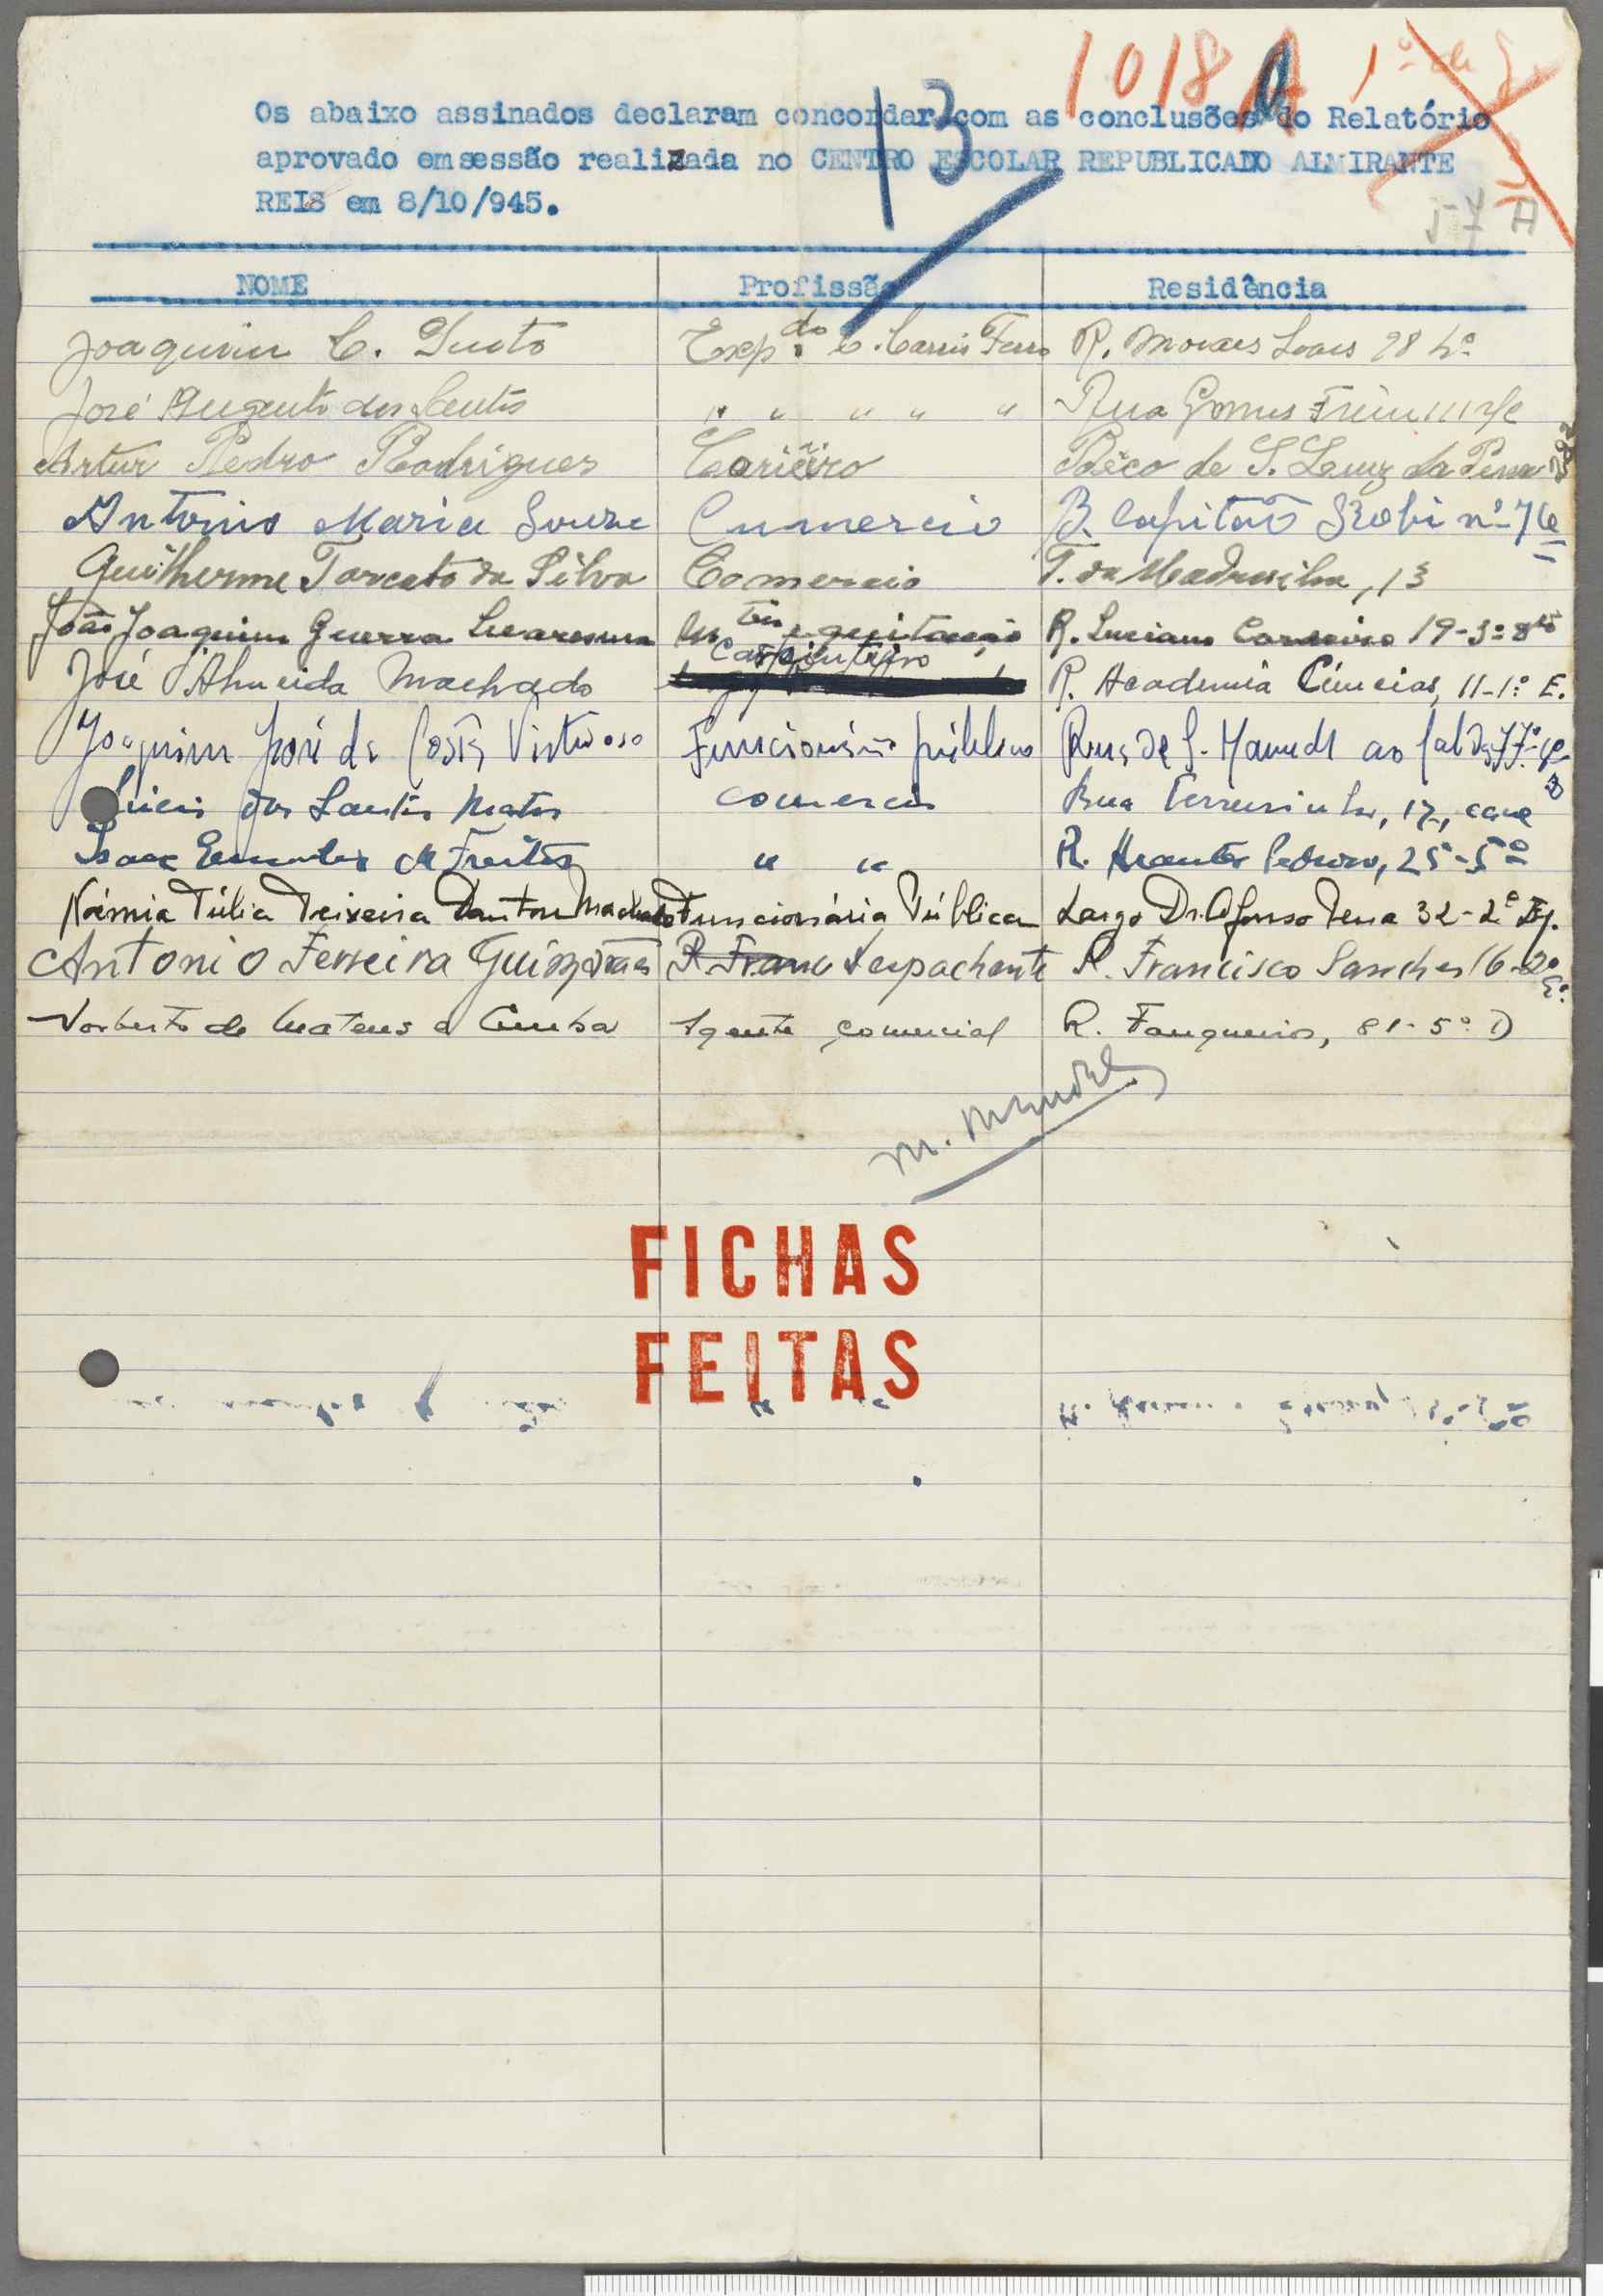 1018 A 1º
13
Os abaixo assinados declaram concordar com as conclusões do Relatório
aprovado em sessão realizada no CENTRO ESCOLAR REPUBLICANO ALMIRANTE
REIS em 8/10/945.
J 7 A
NOME Profissão Residência
Joaquim C. Empdo C. Carris Ferro R. Moraes Soares 98 4º
José Augusto dos Santos " " " " " Rua Gomes Freire 111
Artur Pedro Rodrigues Beco de S. Luiz da Pena
Antonio Maria Souza Cumercio B. Capitão nº 76
Guilherme Torcato da Silva Comercio T. da Madresilva, 13
João Joaquim Guerra equitação R. Luciano Cordeiro 19-3º
José d'Almeida Machado Carpinteiro R. Academia Ciencias, 11-1º E.
Joaquim José da Costa Virtuoso Funcionário público Rua de S. Mamede ao
dos Santos Matos comercio Rua Terreirinho, 17, cave
Isaac de Freitas " " R. 25-5º
Noémia Túlia Teixeira Danton Machado Funcionária Pública Largo Dr. Afonso Pena 32-2º
Antonio Ferreira Guimarães R. Franc despachante R. Francisco Sanches 16-2º
Norberto de Mateus a Cunha Agente comercial R. Fanqueiros, 81-5º D
M. Mendes
FICHAS
FEITAS